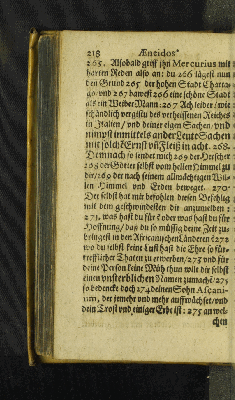 218 Ænzidos
265. Alsobald griff ihn Mercurius mit
harten Reden also an: du 266 lägest nun
den Grund 265 der hohen Stadt Chartago
und 267 bawest 266 eine schöne Stadt
als ein Weiber Mann: 267 Ach leider / wie
schändlich vergissu des verheissenen Reiches
in Italien / und deiner eigen Sachen / und
nimpst inmittels ander Leute Sachen
mit solch Ernst uñ Fleiß in acht. 268.
Demnach / so sendet mich 269 der Herscher
208 der Götter selbst vom hellen Himmel zu
dir / 269 der nach seinem allmächtigen Willen
Himmel und Erden beweget. 270.
Der selbst hat mir befohlen diesen Befehlig
mit dem geschwindesten dir anzumelden:
271, was hast du für / oder was hast du für
Hoffnung / daß du so müssig deine Zeit zubringest
in den Africanischen Ländern? 272
wo du selbst keine Lust hast die Ehre so fürtrefflicher
Thaten zu erwerben / 273 und für
deine Person keine Müh thun wilt dir selbst
einen unsterblichen Namen zumachē / 275
so bedencke doch 274 deinen Sohn Ascanium,
der jemehr und mehr auffwächset / und
dein Trost und einiger Erbe ist: 275 an welchen